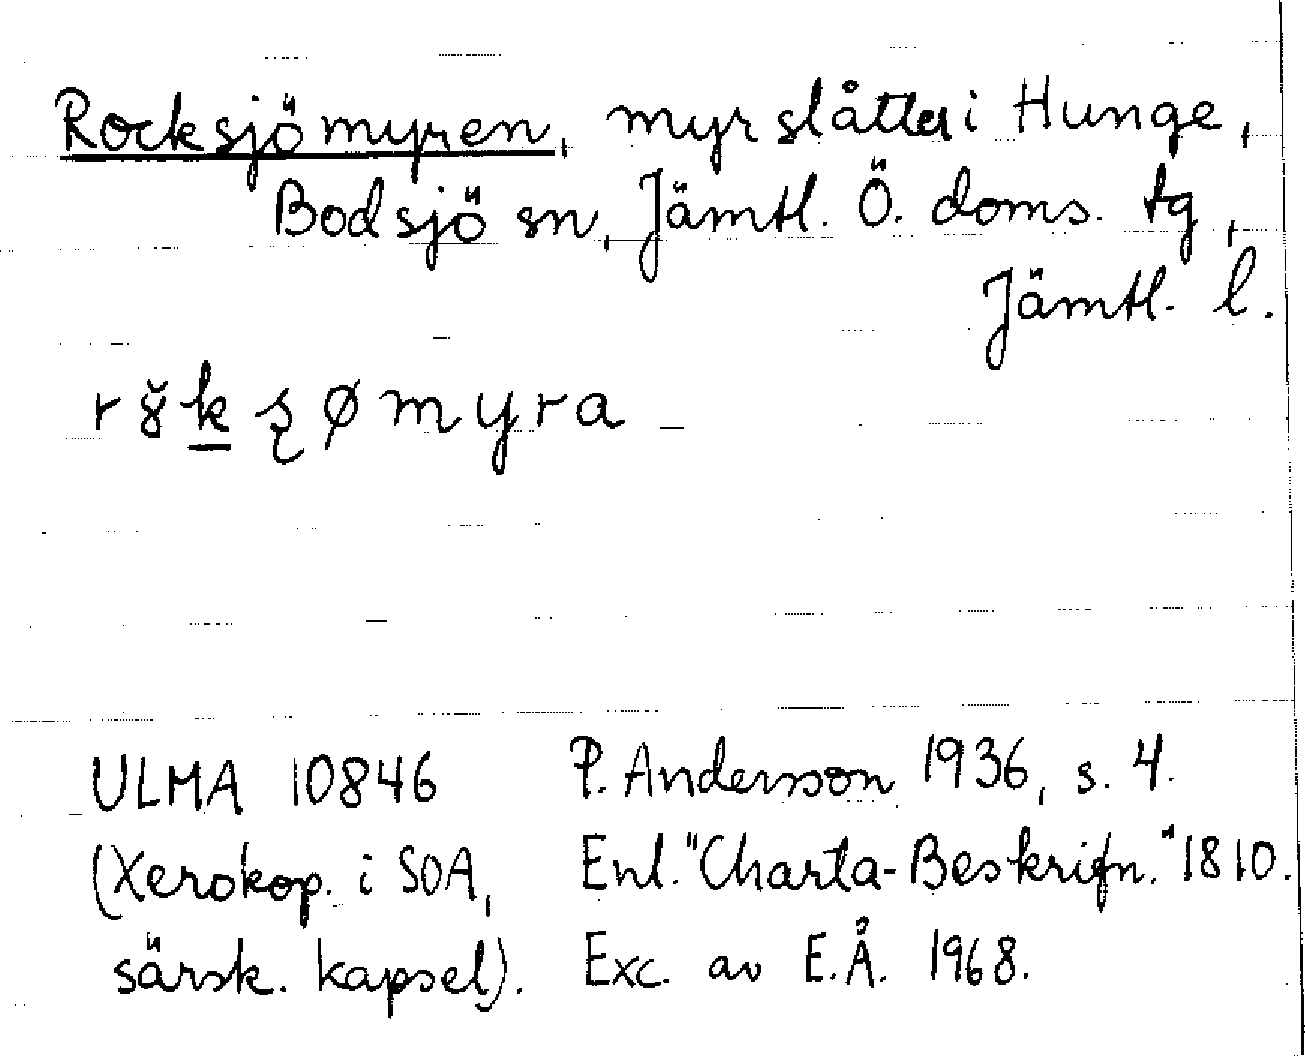 Rocksjömyren, myrslåtter i Hunge,
Bodsjö sn, Jämtl. Ö. doms. tg,
Jämtl. l.
ULMA 10846 P. Andersson 1936, s. 4.
(Xerokop. i SOA, Enl. "Charta-Beskrifn." 1810.
särsk. kapsel). Exc. av E.Å. 1968.